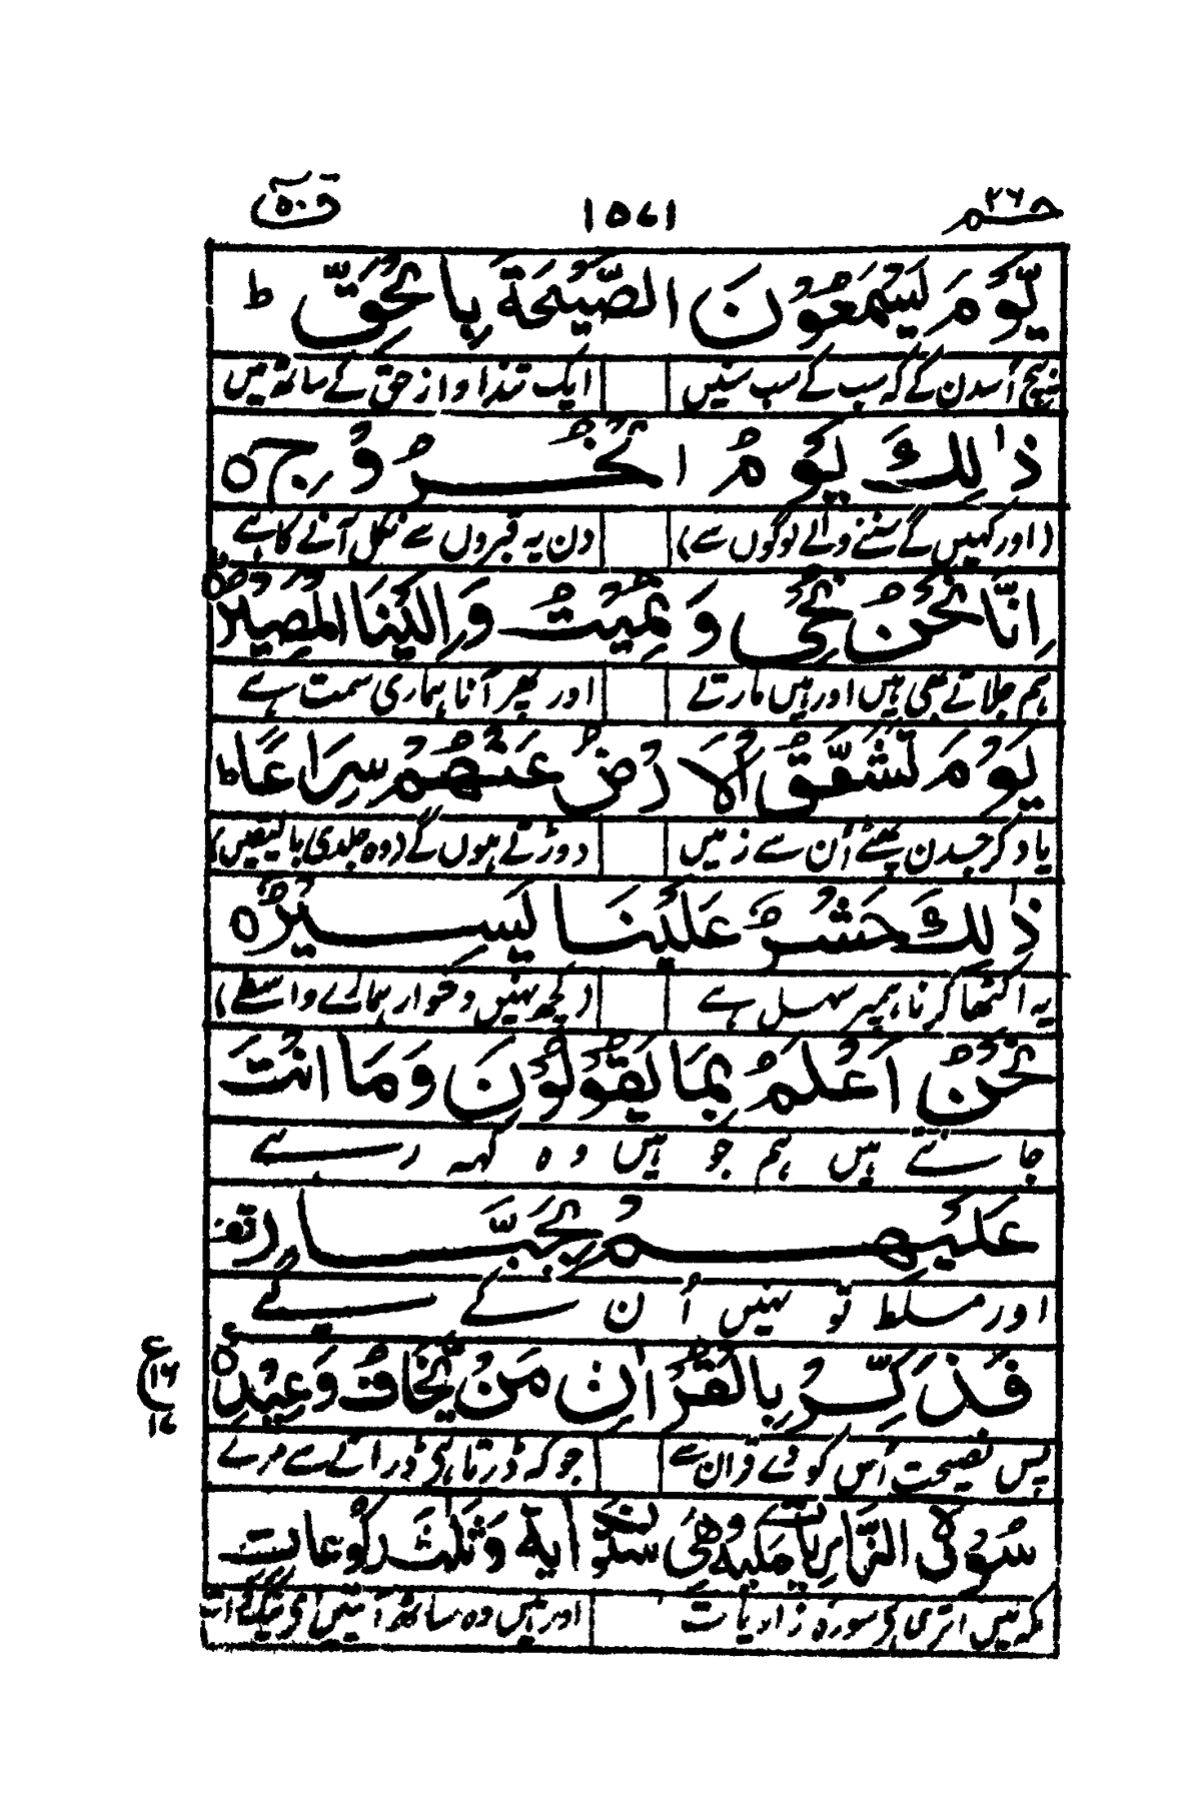 حٰم ٢٦ ١٥٧١ قٓ ٥٠
يَّوْمَ يَسْمَعُوْنَ الصَّيْحَةَ بِالْحَقِّ ط
اُسدن کے کہ سب کے سب سنیں ایک تند اواز حق کے ساتھ میں
ذٰلِكَ يَوْمُ الْخُرُوْجِ ○
(اور کہیں گے سننے والے لوگوں سے) دن یہ قبروں سے نکل آنے کا ہے
اِنَّا نَحْنُ نُحْيٖ وَ نُمِيْتُ وَ اِلَيْنَا الْمَصِيْرُ ○
ہم جلاتے بھی ہیں اور ہیں مارتے اور پھر آنا ہماری سمت ہے
يَوْمَ تَشَقَّقُ الْاَرْضُ عَنْهُمْ سِرَاعًا ط
یاد کر جسدن پھٹے اُن سے زمیں دوڑتے ہوں گے (وہ جلدی بالیقیں)
ذٰلِكَ حَشْرٌ عَلَيْنَا يَسِيْرٌ ○
یہ اکٹھا کرنا ہمپر سہل ہے (کچھ نہیں دشوار ہمارے واسطے)
نَحْنُ اَعْلَمُ بِمَا يَقُوْلُوْنَ وَمَا اَنْتَ
جانتے ہیں ہم جو ہیں وہ کہہ رہے
عَلَيْهِمْ بِجَبَّارٍ قف
اور مسلط تو نہیں اُن کے لیے
فَذَكِّرْ بِالْقُرْاٰنِ مَنْ يَّخَافُ وَعِيْدِ ○
ع ١٦ ١٧
پس نصیحت اُس کو دے قران سے جو کہ ڈرتا ہی ڈراتے سے مرے
سُوْرَةُ الذّٰرِيٰتِ مَكِّيَّةٌ وَّهِيَ سِتُّوْنَ اٰيَةً وَّ ثَلٰثُ رُكُوْعَاتٍ
مکہ میں اتری ہی سورہ ذاریات اور ہیں وہ ساٹھ آیتیں